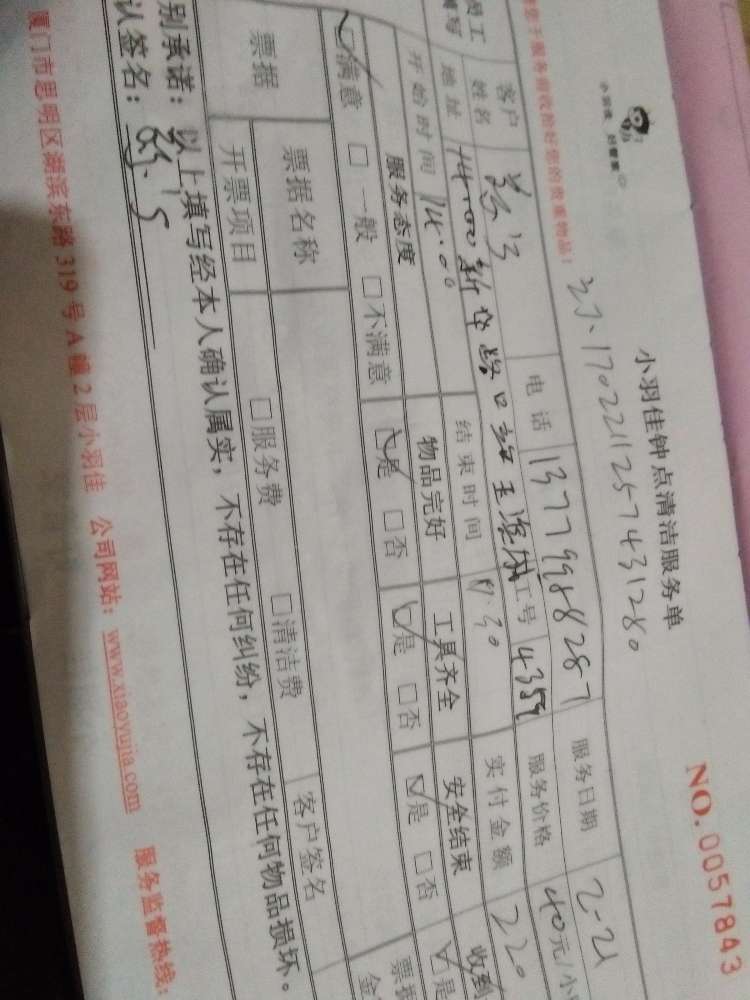 小羽佳 好管家
小羽佳钟点清洁服务单
NO.0057843
您于服务前收拾好您的贵重物品！
1702211257431280
客户
姓名
电话 13779988287
服务日期 2-21
地址
工号 4359
服务价格 40元/小
开始时间 14:00
结束时间
实付金额 220
服务态度
物品完好
工具齐全
安全结束
收到
☑满意 □一般 □不满意
☑是 □否
☑是 □否
☑是 □否
☑是
票据
票据名称
开票项目
□服务费
□清洁费
客户签名
票据
金
别承诺：以上填写经本人确认属实，不存在任何纠纷，不存在任何物品损坏。
认签名：
厦门市思明区湖滨东路319号A幢2层小羽佳 公司网站：www.xiaoyujia.com 服务监督热线：